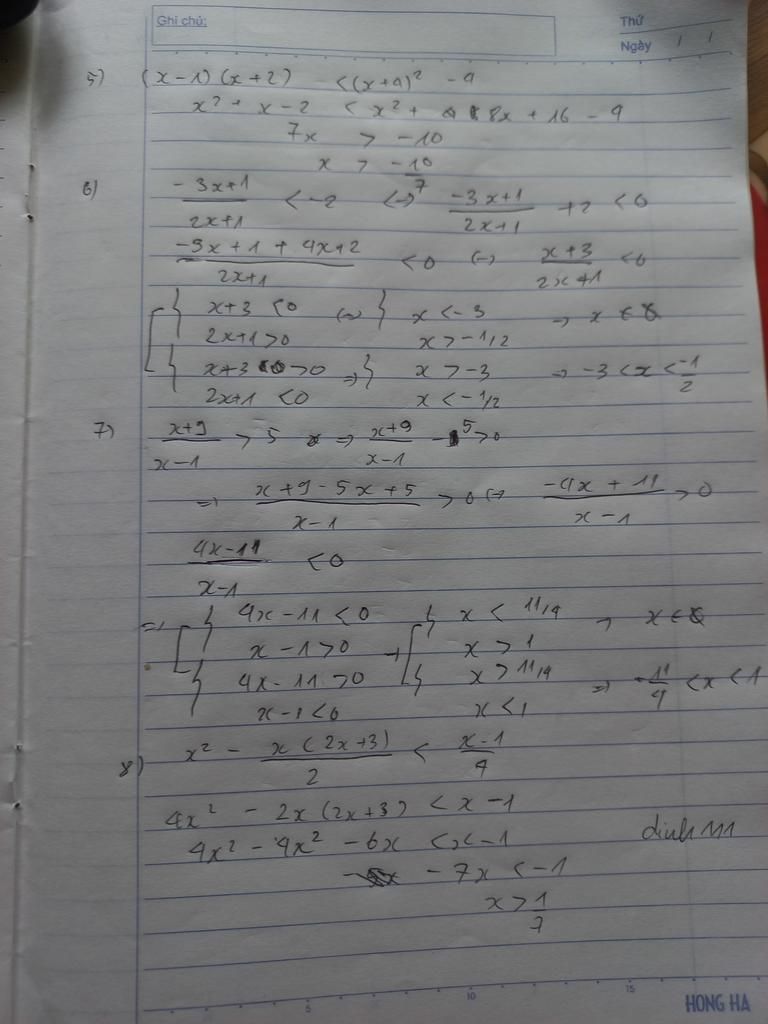 Ghi chú:
Thứ
Ngày / /
5) (x-1)(x+2) < (x+4)² - 4
x² + x - 2 < x² + 8x + 16 - 4
7x > -10
x > -10/7
6) (-3x+1)/(2x+1) < -2 <-> (-3x+1)/(2x+1) + 2 < 0
(-3x+1+4x+2)/(2x+1) < 0 <-> (x+3)/(2x+1) < 0
[ { x+3 < 0 <-> { x < -3 -> x ∈ ∅
2x+1 > 0 x > -1/2
{ x+3 > 0 => { x > -3 -> -3 < x < -1/2
2x+1 < 0 x < -1/2
7) (x+9)/(x-1) > 5 => (x+9)/(x-1) - 5 > 0
=> (x+9-5x+5)/(x-1) > 0 <-> (-4x+11)/(x-1) > 0
(4x-11)/(x-1) < 0
=> [ { 4x-11 < 0 -> [ { x < 11/4 -> x ∈ ∅
x-1 > 0 x > 1
{ 4x-11 > 0 { x > 11/4 => -11/4 < x < 1
x-1 < 0 x < 1
8) x² - x(2x+3)/2 < (x-1)/4
4x² - 2x(2x+3) < x-1
4x² - 4x² - 6x < x-1
-7x < -1
x > 1/7
5 10 15
HONG HA